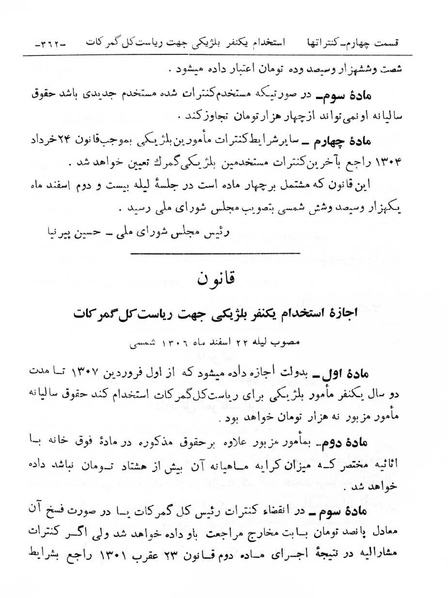 قسمت چهارم ـ کنتراتها استخدام یکنفر بلژیکی جهت ریاست کل گمرکات -۳۶۲-
شصت وششهزار وسیصد وده تومان اعتبار داده میشود .
مادهٔ سوم ـ در صورتیکه مستخدم کنترات شده مستخدم جدیدی باشد حقوق
سالیانه اونمی‌تواند از چهار هزار تومان تجاوز کند .
مادهٔ چهارم ـ سایر شرایط کنترات مأمورین بلژیکی بموجب قانون ۲۴ خرداد
۱۳۰۴ راجع بآخرین کنترات مستخدمین بلژیکی گمرك تعیین خواهد شد .
این قانون که مشتمل برچهار ماده است در جلسهٔ لیله بیست و دوم اسفند ماه
یکهزار وسیصد وشش شمسی بتصویب مجلس شورای ملی رسید .
رئیس مجلس شورای ملی ـ حسین پیرنیا
قانون
اجازهٔ استخدام یکنفر بلژیکی جهت ریاست کل گمرکات
مصوب لیله ۲۲ اسفند ماه ۱۳۰۶ شمسی
مادهٔ اول ـ بدولت اجازه داده میشود که از اول فروردین ۱۳۰۷ تا مدت
دو سال یکنفر مأمور بلژیکی برای ریاست کل گمرکات استخدام کند حقوق سالیانه
مأمور مزبور نه هزار تومان خواهد بود .
مادهٔ دوم ـ بمأمور مزبور علاوه برحقوق مذکوره در مادهٔ فوق خانه با
اثاثیه مختصر که میزان کرایه ماهیانه آن بیش از هشتاد تومان نباشد داده
خواهد شد .
مادهٔ سوم ـ در انقضاء کنترات رئیس کل گمرکات یا در صورت فسخ آن
معادل پانصد تومان بابت مخارج مراجعت باو داده خواهد شد ولی اگر کنترات
مشارالیه در نتیجهٔ اجرای ماده دوم قانون ۲۳ عقرب ۱۳۰۱ راجع بشرایط